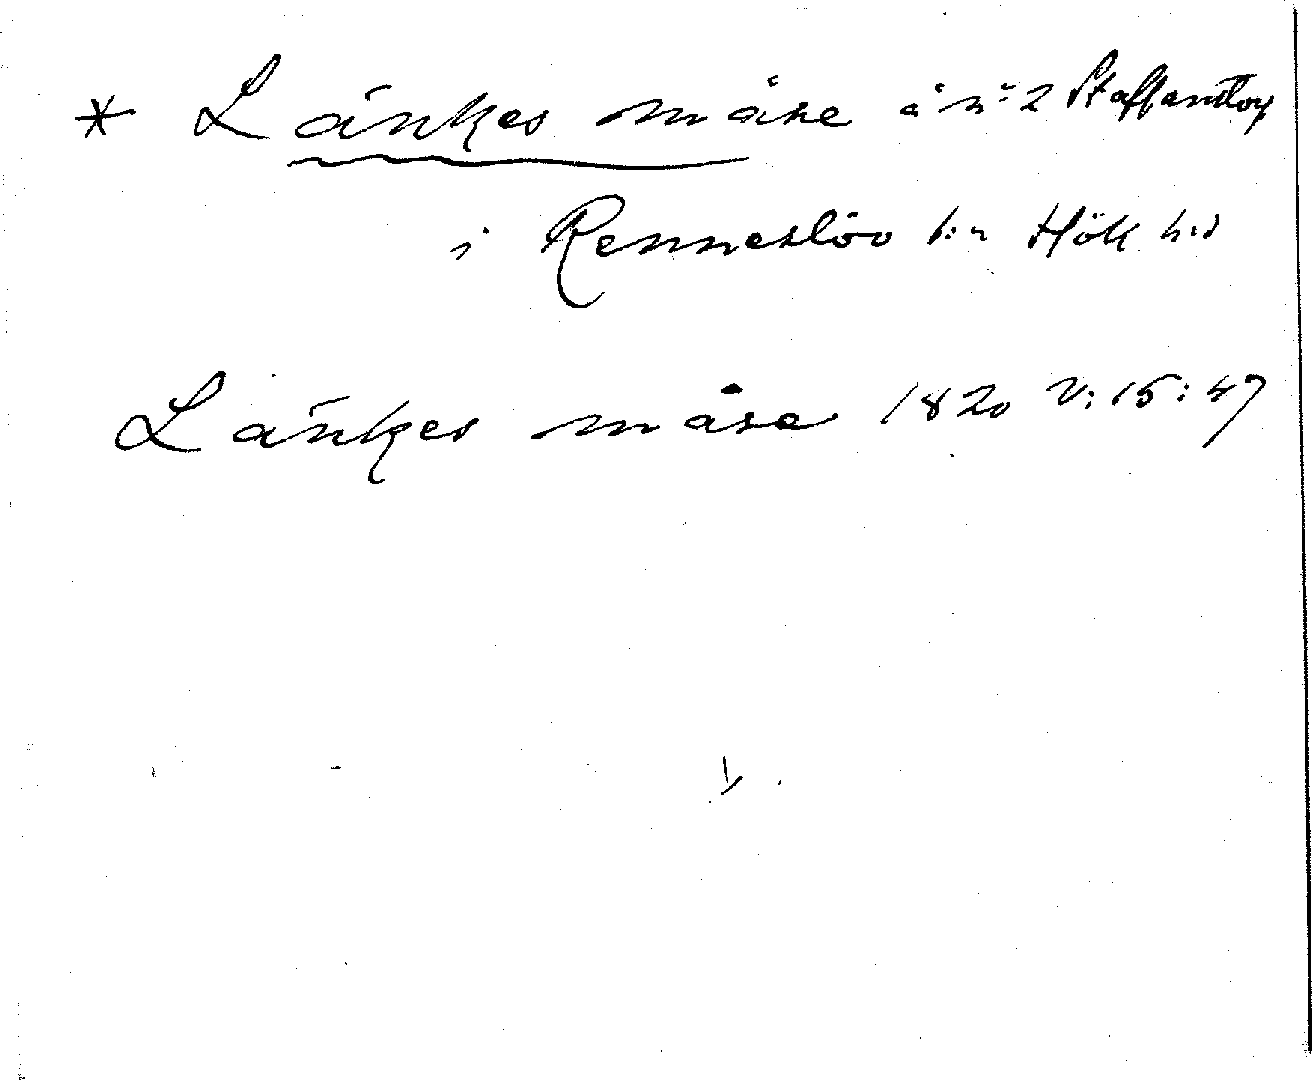 * Länkes måse å n:2 Staffanstorp
i Renneslöv s:n Hök h:d
Länkes måse 1820 V:15:47